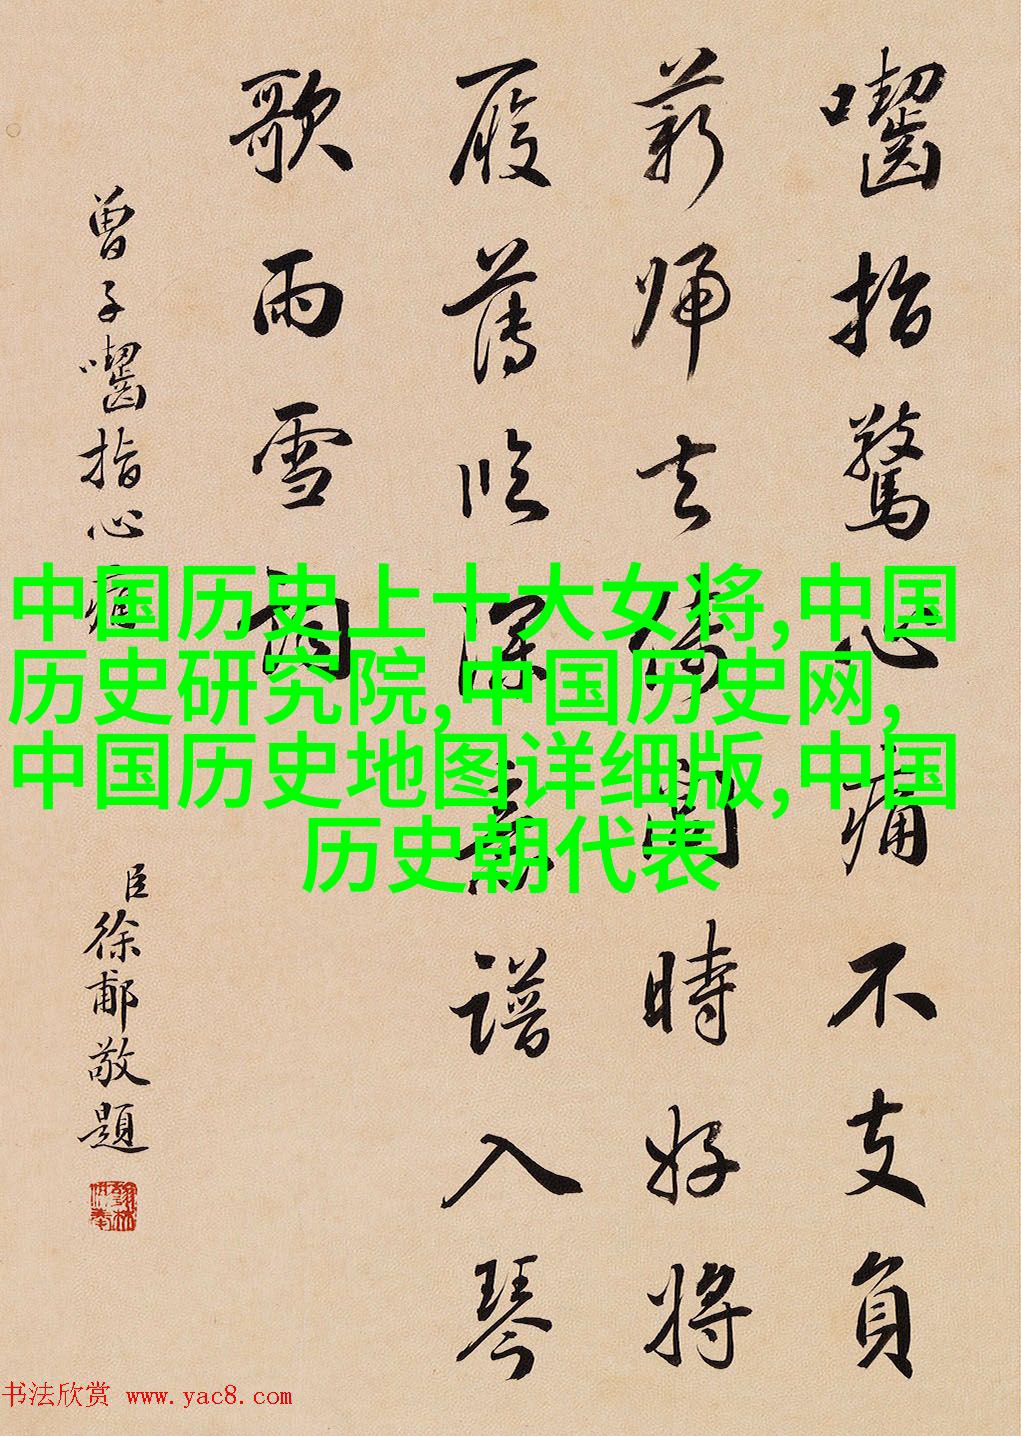 囓指驚心痛不支負
薪歸去倚閭時好將
履薄臨深意譜入琴
歌雨雪
曾子囓指心痛
臣徐郙敬題
中国历史上十大女将,中国
历史研究院,中国历史网,
中国历史地图详细版,中国
历史朝代表
书法欣赏 www.yac8.com